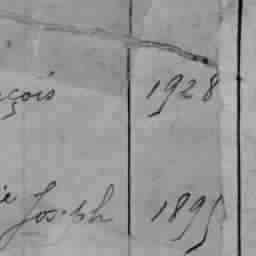 çois 1928
ie Joseph 1895